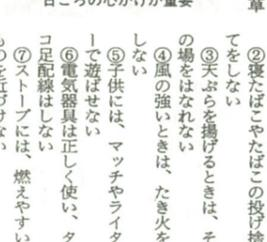 日ごろの心がけが重要
章
②寝たばこやたばこの投げ捨
てをしない
③天ぷらを揚げるときは、そ
の場をはなれない
④風の強いときは、たき火を
しない
⑤子供には、マッチやライタ
ーで遊ばせない
⑥電気器具は正しく使い、タ
コ足配線はしない
⑦ストーブには、燃えやすい
ものを近づけない